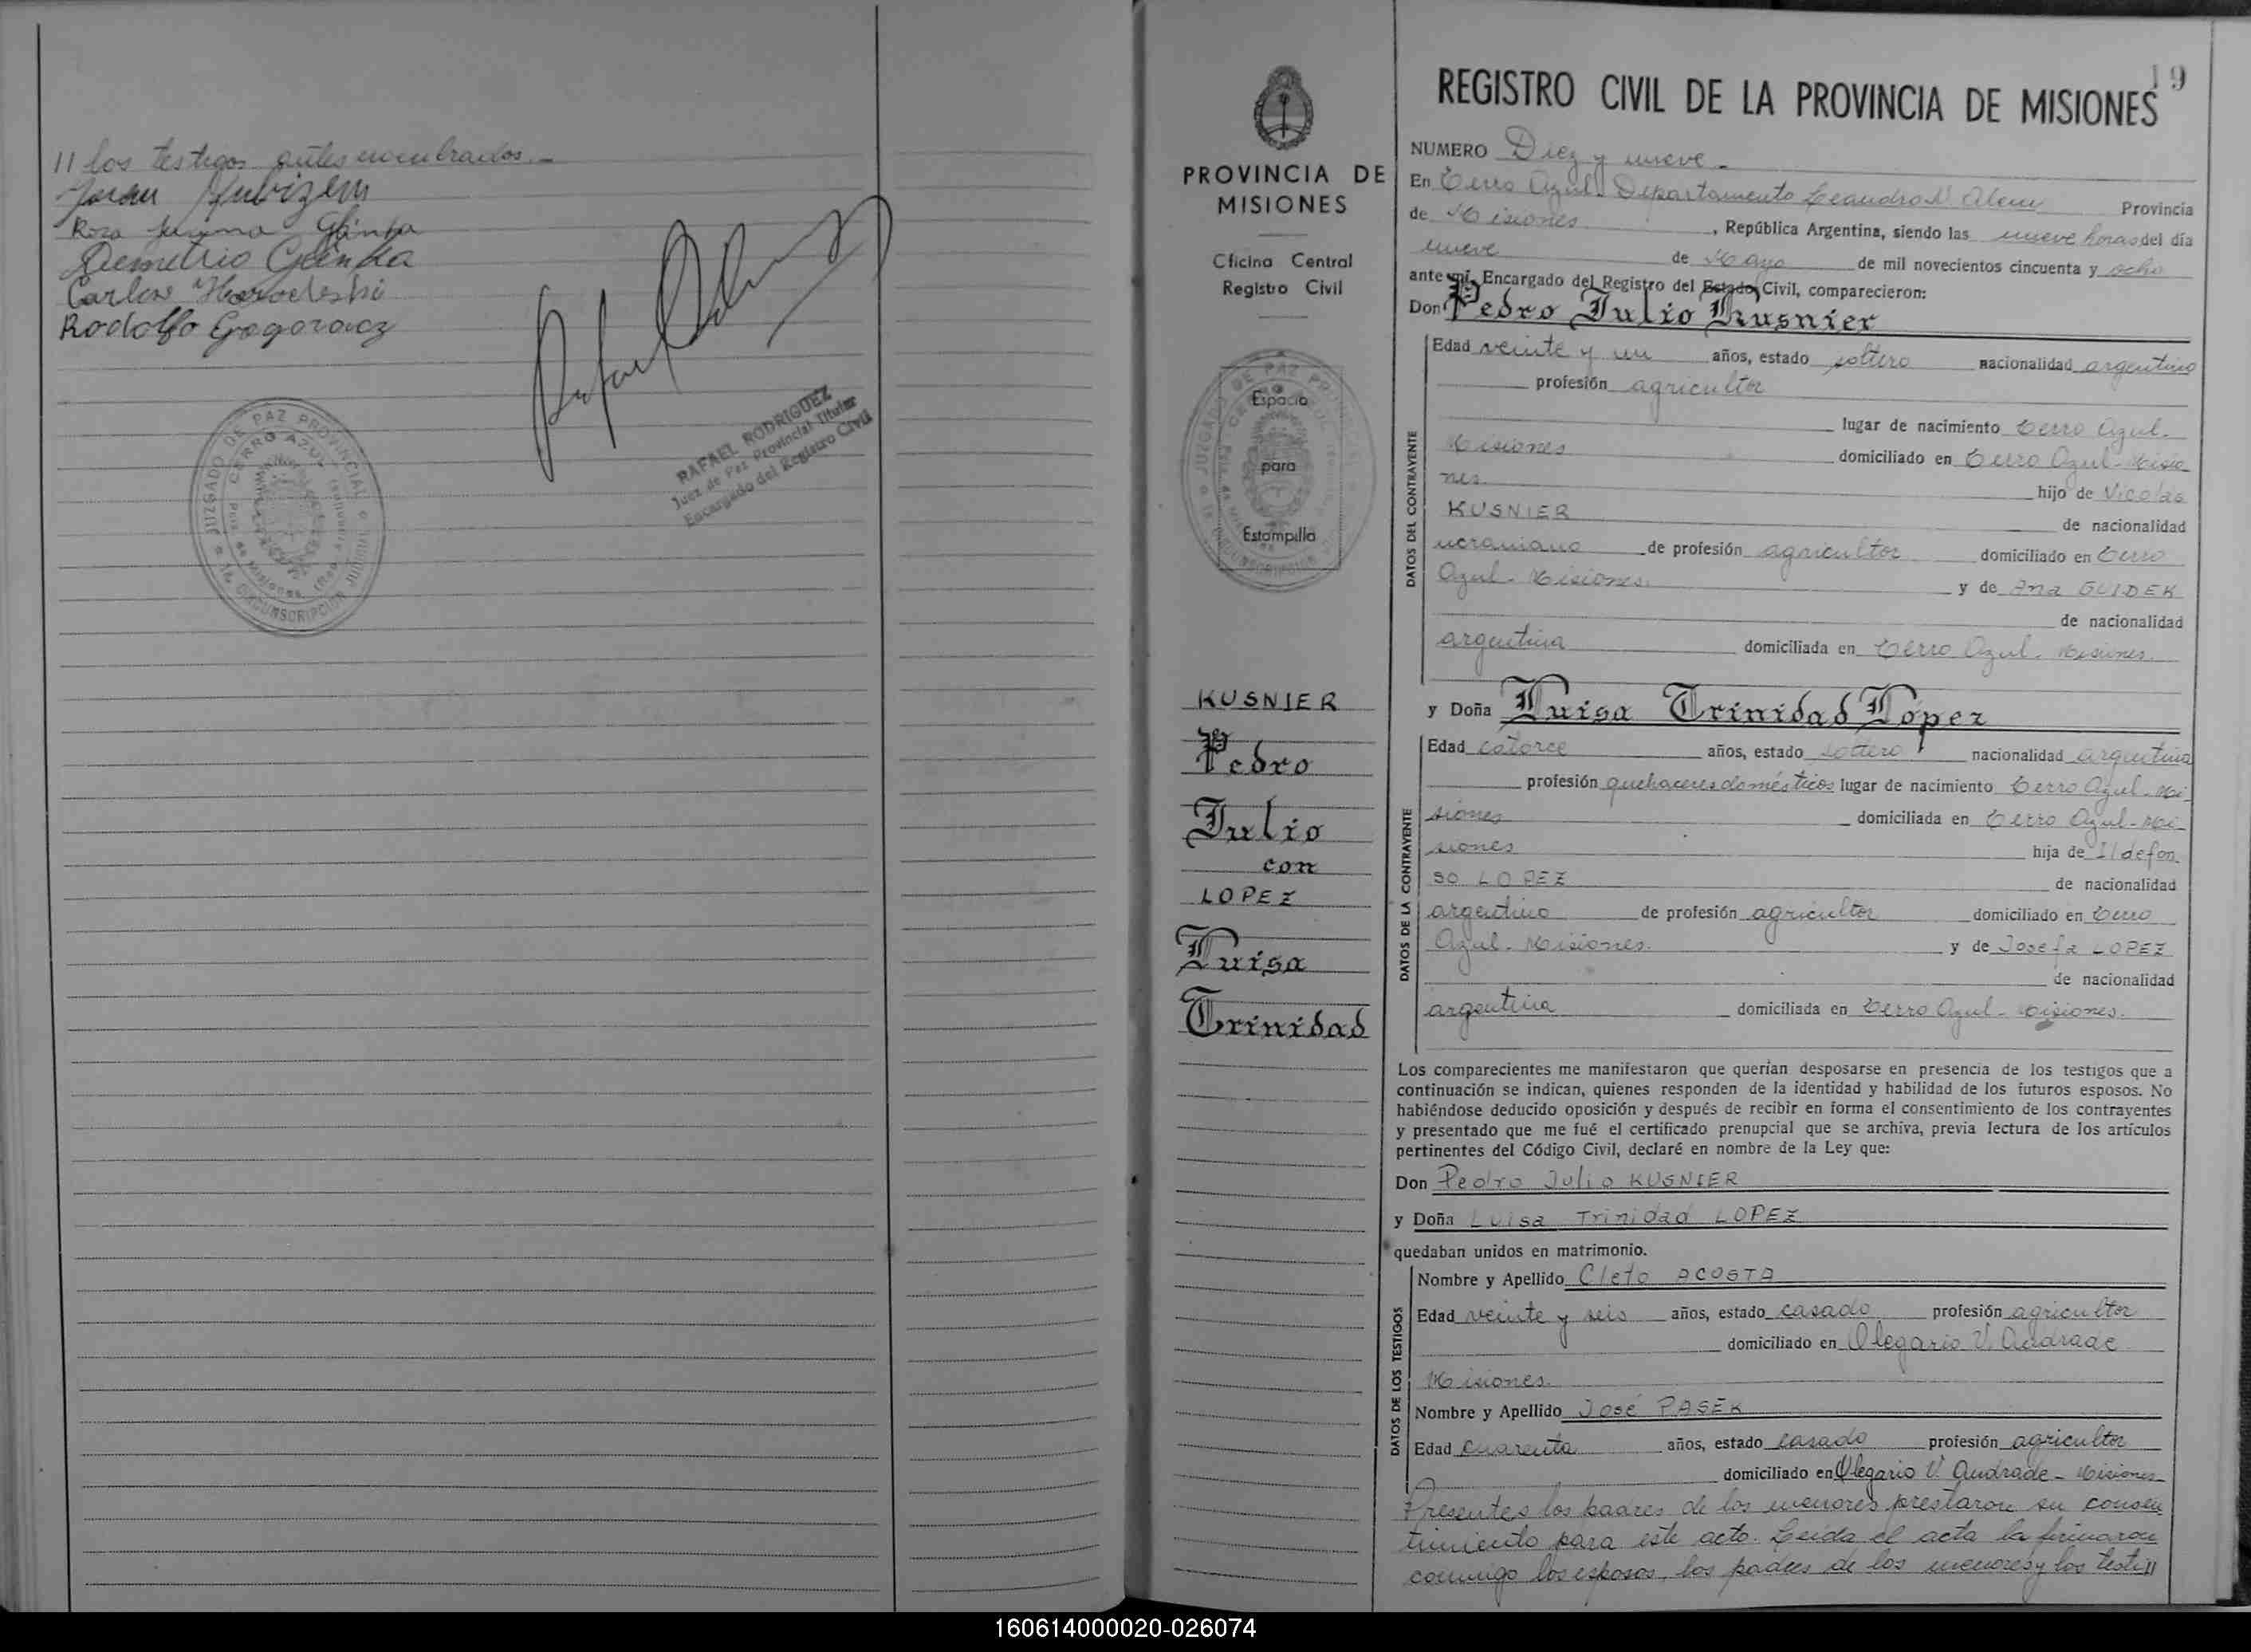 11 los testigos antes nombrados.-
Juan
Rosa Glinka
Demetrio Glinka
Carlos
Rodolfo
RAFAEL RODRIGUEZ
Juez de Paz Provincial Titular
Encargado del Registro Civil
JUZGADO DE PAZ PROVINCIAL
CERRO AZUL
CIRCUNSCRIPCION JUDICIAL
PROVINCIA DE
MISIONES
Oficina Central
Registro Civil
Espacio
para
Estampilla
KUSNIER
Pedro
Julio
con
LOPEZ
Luisa
Trinidad
19
REGISTRO CIVIL DE LA PROVINCIA DE MISIONES
NUMERO Diez y nueve -
En Cerro Azul. Departamento Leandro N. Alem Provincia
de Misiones, República Argentina, siendo las nueve horas del día
nueve de Mayo de mil novecientos cincuenta y ocho
ante mí, Encargado del Registro del Estado Civil, comparecieron:
Don Pedro Julio Kusnier
DATOS DEL CONTRAYENTE
Edad veinte y un años, estado soltero nacionalidad argentino
profesión agricultor
lugar de nacimiento Cerro Azul.
Misiones domiciliado en Cerro Azul - Misio
nes. hijo de Nicolas
KUSNIER de nacionalidad
ucraniano de profesión agricultor domiciliado en Cerro
Azul - Misiones. y de Ana GUIDEK
de nacionalidad
argentina domiciliada en Cerro Azul. Misiones.
y Doña Luisa Trinidad Lopez
DATOS DE LA CONTRAYENTE
Edad catorce años, estado soltero nacionalidad argentina
profesión quehaceres domésticos lugar de nacimiento Cerro Azul - Mi
siones domiciliada en Cerro Azul - Mi
siones hija de Ildefon
so LOPEZ de nacionalidad
argentino de profesión agricultor domiciliado en Cerro
Azul - Misiones. y de Josefa LOPEZ
de nacionalidad
argentina domiciliada en Cerro Azul - Misiones.
Los comparecientes me manifestaron que querían desposarse en presencia de los testigos que a
continuación se indican, quienes responden de la identidad y habilidad de los futuros esposos. No
habiéndose deducido oposición y después de recibir en forma el consentimiento de los contrayentes
y presentado que me fué el certificado prenupcial que se archiva, previa lectura de los artículos
pertinentes del Código Civil, declaré en nombre de la Ley que:
Don Pedro Julio KUSNIER
y Doña Luisa Trinidad LOPEZ
quedaban unidos en matrimonio.
DATOS DE LOS TESTIGOS
Nombre y Apellido Cleto ACOSTA
Edad veinte y seis años, estado casado profesión agricultor
domiciliado en Olegario V. Andrade
Misiones.
Nombre y Apellido José PASEK
Edad cuarenta años, estado casado profesión agricultor
domiciliado en Olegario V. Andrade - Misiones
Presentes los padres de los menores prestaron su consen
timiento para este acto. Leída el acta la firmaron
conmigo los esposos, los padres de los menores y los testi11
160614000020-026074